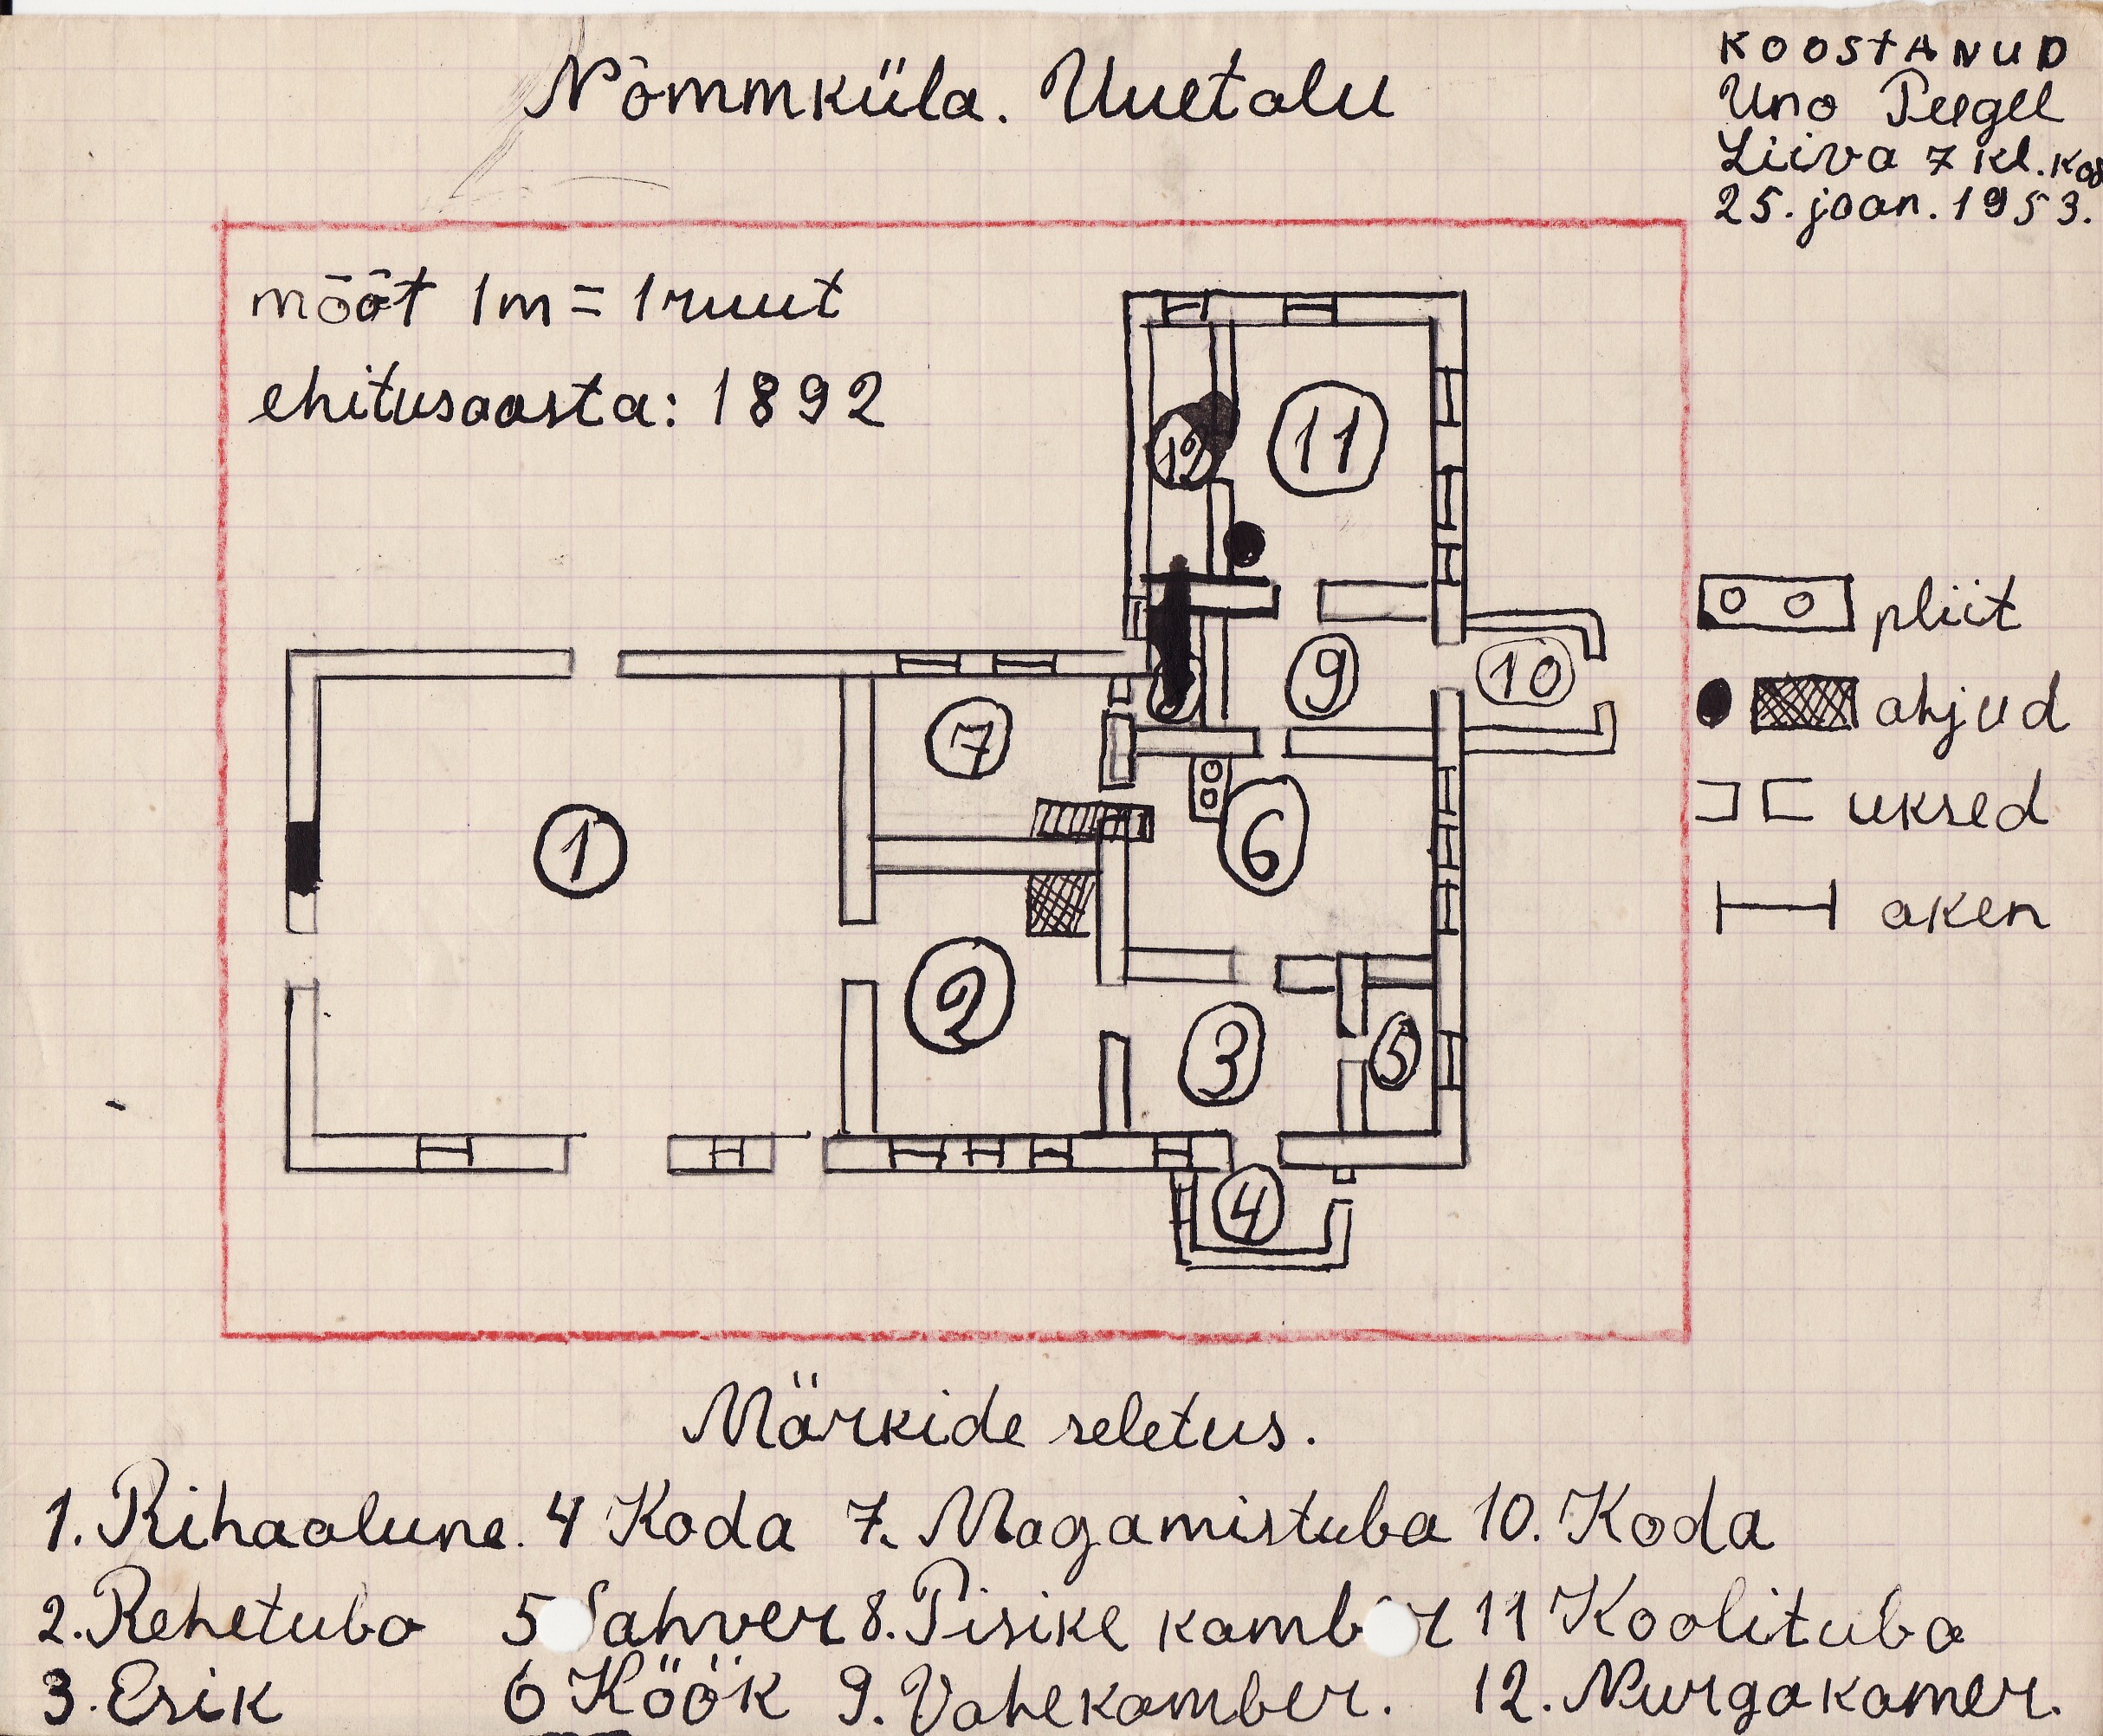 Nõmmküla. Uuetalu
KOOSTANUD
Uno Peegel
Liiva 7 kl. Koo
25. jaan. 1953.
mõõt 1m = 1 ruut
ehitusaasta: 1892
12
11
9
10
7
1
6
2
3
5
4
pliit
ahjud
uksed
aken
Märkide seletus.
1. Rihaalune. 4 Koda 7. Magamistuba 10. Koda
2. Rehetuba 5 Sahver 8. Pisike kamber 11 Koolituba
3. Esik 6 Köök 9. Vahekamber. 12. Nurgakamer.